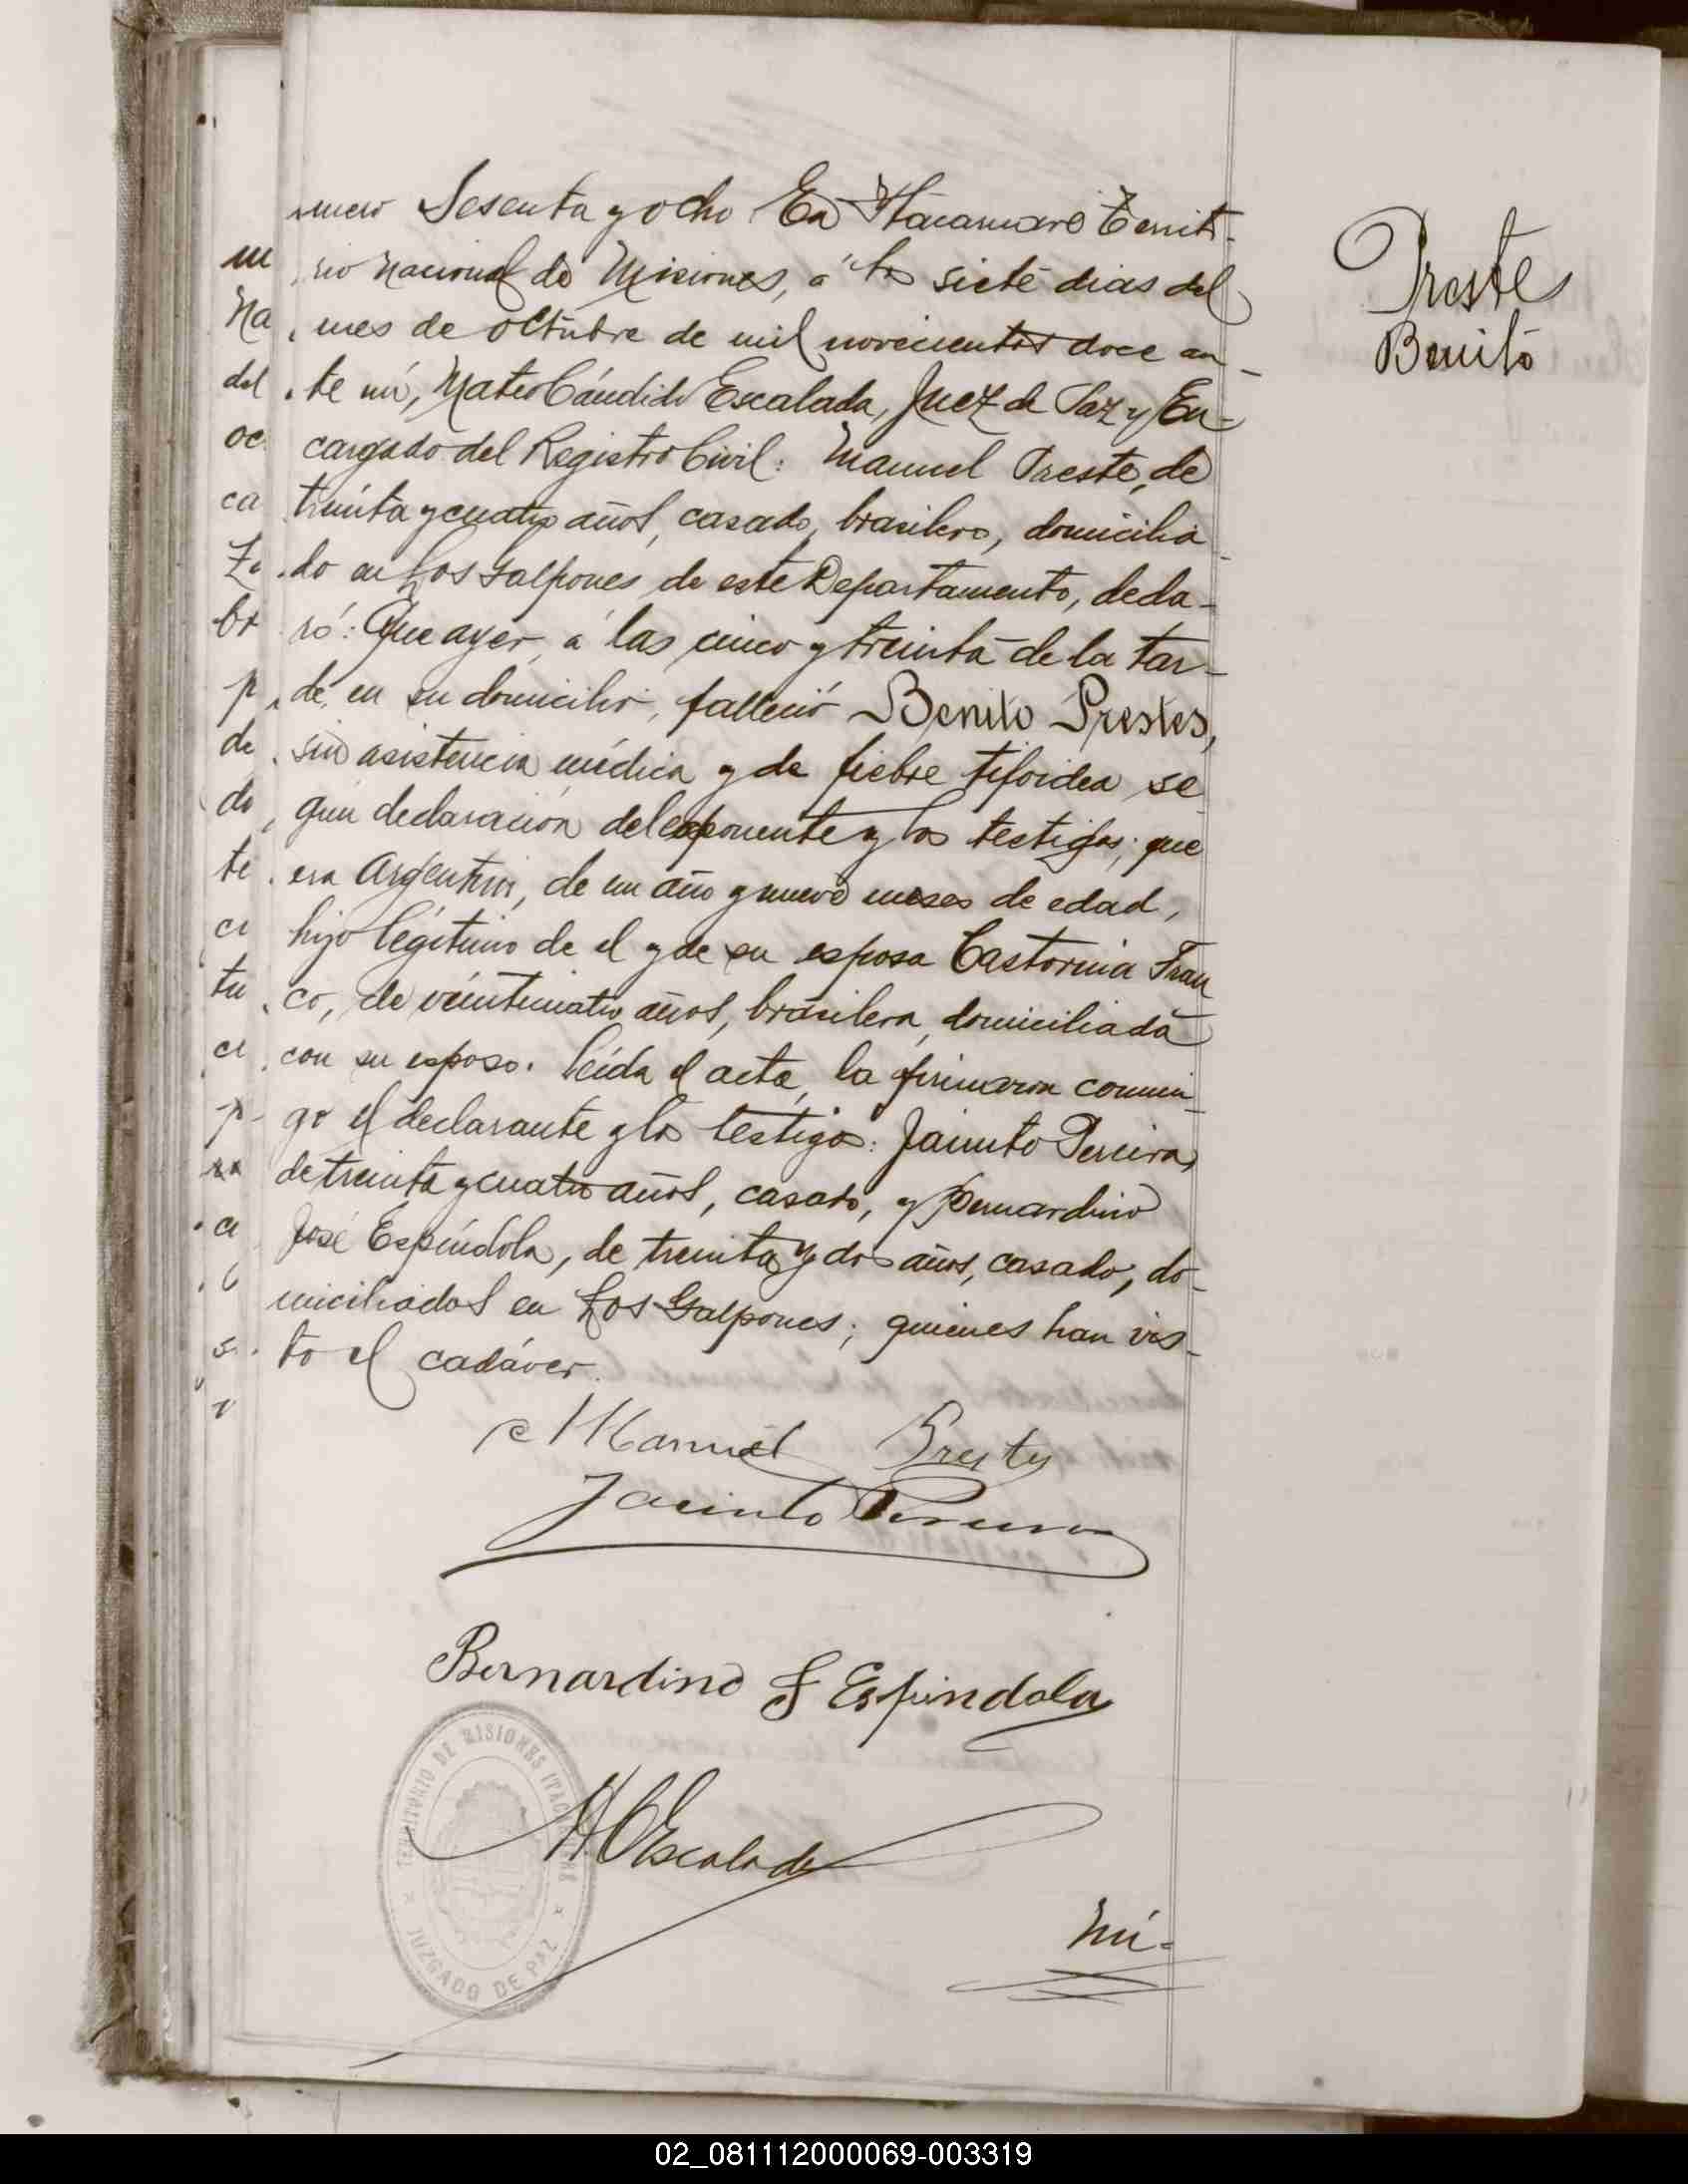 mero Sesenta y ocho En Itacaruaré Territo-
rio Nacional de Misiones, á los siete dias del
mes de Octubre de mil novecientos doce an-
te mí, Mateo Cándido Escalada, Juez de Paz y En-
cargado del Registro Civil: Manuel Preste, de
treinta y cuatro años, casado, brasilero, domicilia-
do en Los Galpones de este Departamento, decla-
ró: Que ayer, á las cinco y treinta de la tar-
de, en su domicilio, falleció Benito Prestes,
sin asistencia médica y de fiebre tifoidea se
gún declaración del exponente y los testigos; que
era Argentino, de un año y nueve meses de edad,
hijo legítimo de el y de su esposa Castorina Fran
co, de veinticuatro años, brasilera, domiciliada
con su esposo. Leída el acta, la firmaron conmi-
go el declarante y los testigos: Jacinto Pereira,
de treinta y cuatro años, casado, y Bernardino
José Espíndola, de treinta y dos años, casado, do-
miciliados en Los Galpones; quienes han vis-
to el cadáver.
Preste
Benito
Manuel Prestes
Jacinto Pereira
Bernardino J Espindola
MCEscalada
TERRITORIO DE MISIONES
JUZGADO DE PAZ
Nú-
m
Na
del
oc
ca
br
p
de
do
te
ci
tu
ci
p-
ra
a
s
02_081112000069-003319